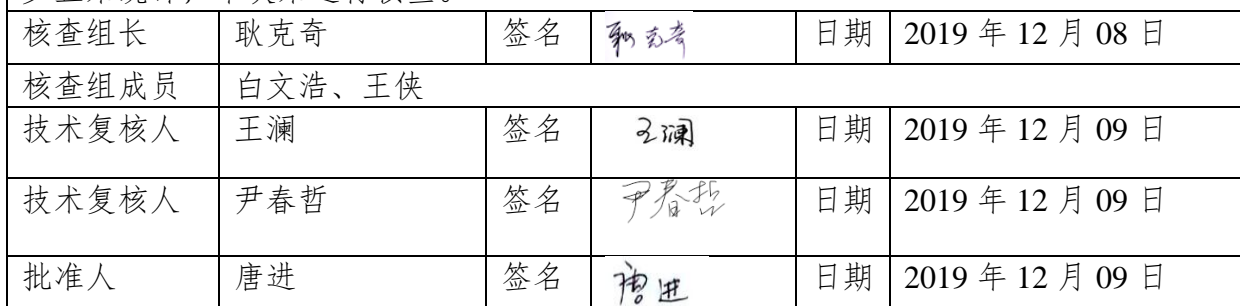 核查组长 耿克奇 签名 耿克奇 日期 2019 年 12 月 08 日
核查组成员 白文浩、王侠
技术复核人 王澜 签名 王澜 日期 2019 年 12 月 09 日
技术复核人 尹春哲 签名 尹春哲 日期 2019 年 12 月 09 日
批准人 唐进 签名 唐进 日期 2019 年 12 月 09 日